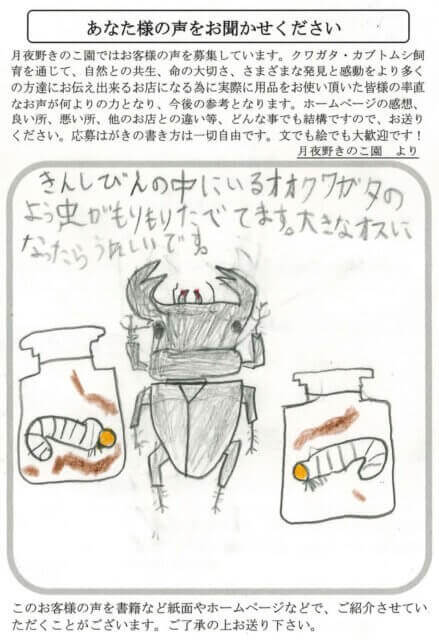 あなた様の声をお聞かせください
月夜野きのこ園ではお客様の声を募集しています。クワガタ・カブトムシ飼
育を通じて、自然との共生、命の大切さ、さまざまな発見と感動をより多く
の方達にお伝え出来るお店になる為に実際に用品をお使い頂いた皆様の率直
なお声が何よりの力となり、今後の参考となります。ホームページの感想、
良い所、悪い所、他のお店との違い等、どんな事でも結構ですので、お送り
ください。応募はがきの書き方は一切自由です。文でも絵でも大歓迎です！
月夜野きのこ園　より
きんしびんの中にいるオオクワガタの
よう虫がもりもりたべてます。大きなオスに
なったらうれしいです。
このお客様の声を書籍など紙面やホームページなどで、ご紹介させてい
ただくことがございます。ご了承の上お送り下さい。